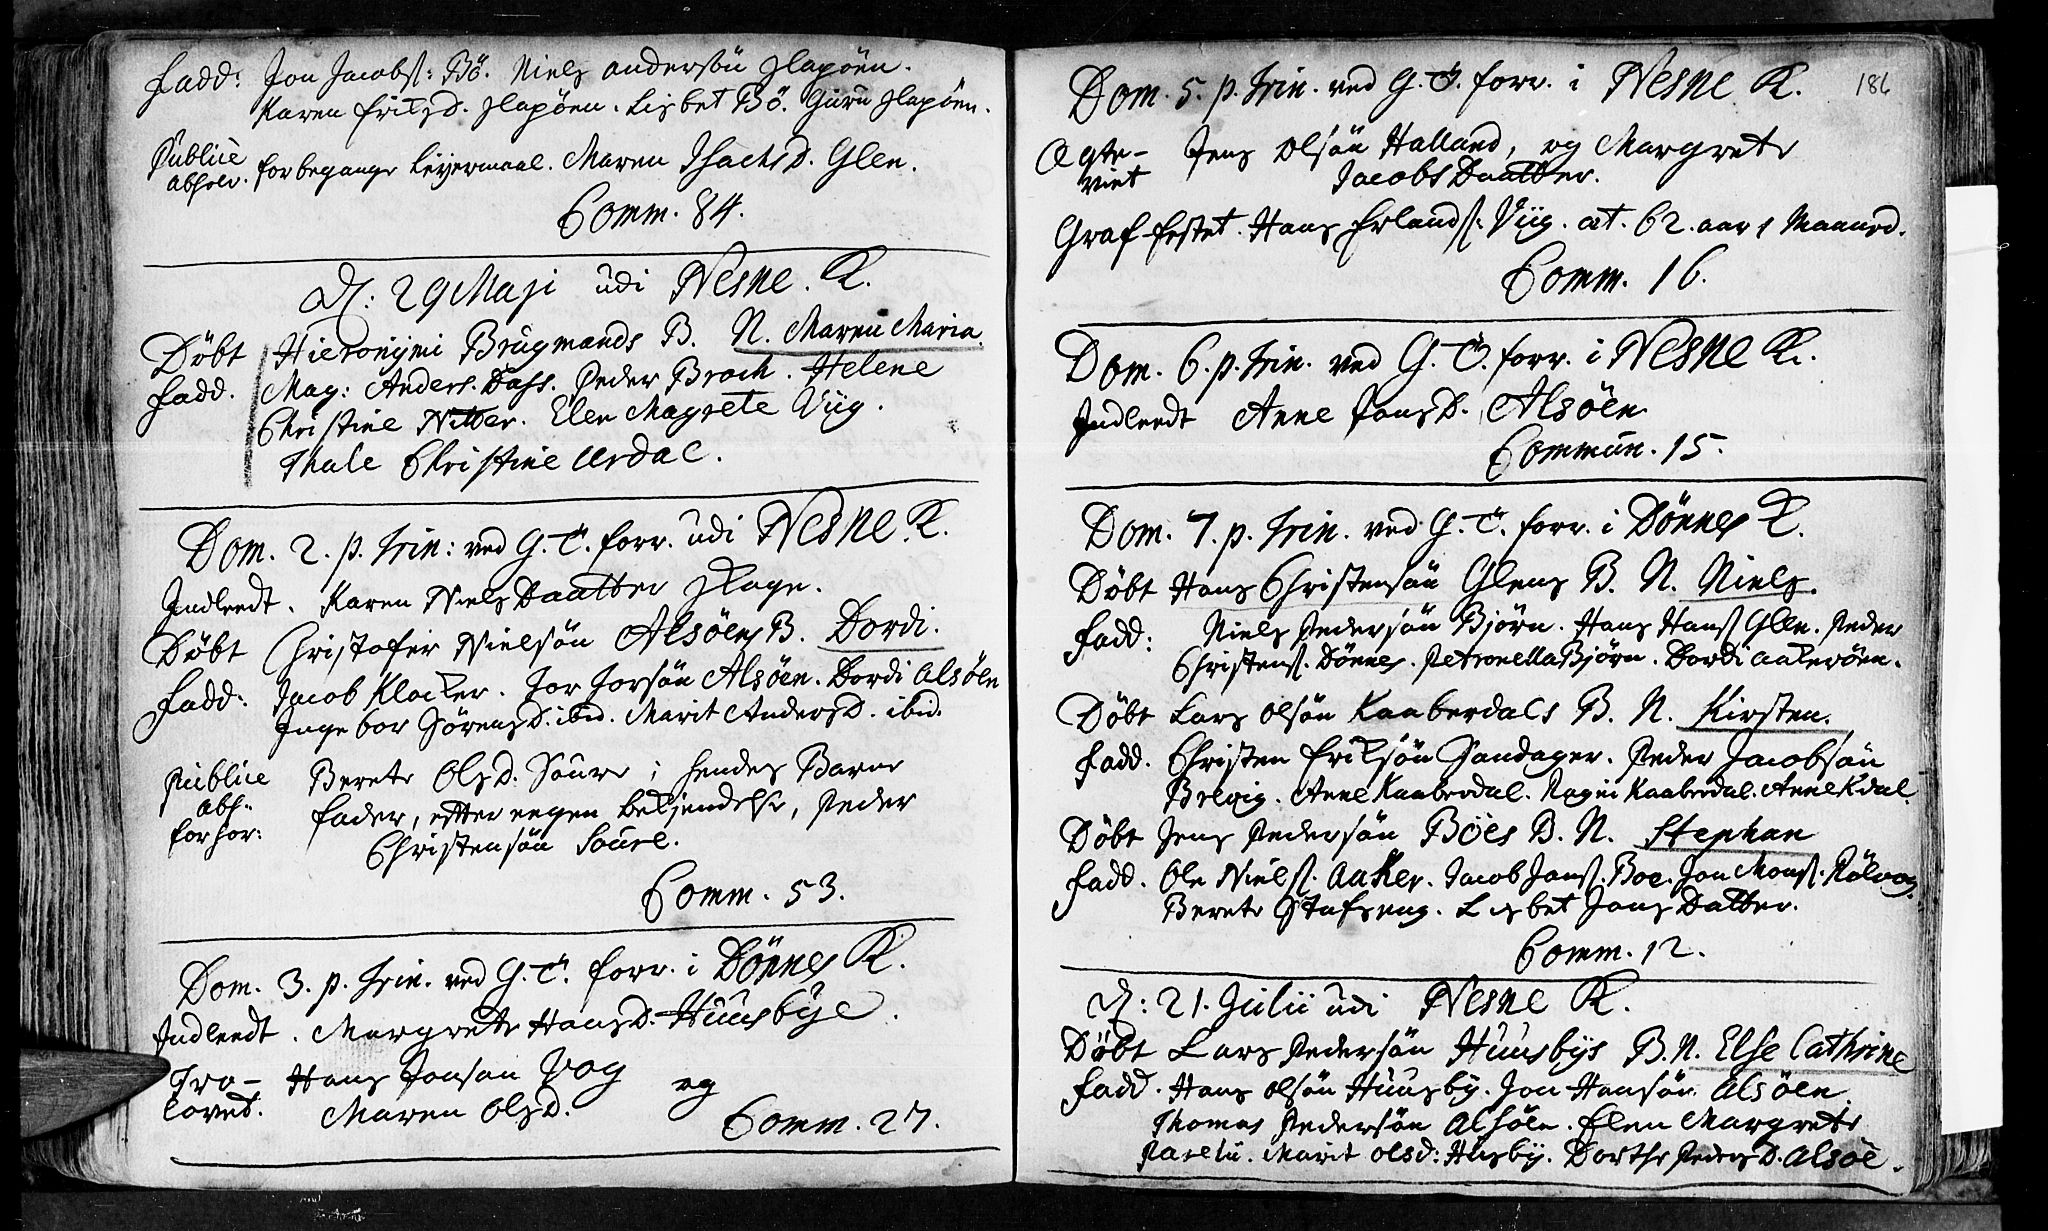 Fadd: Jon Jacobs: Bö. Niels Andersön Hapöen.
Karen EriksD. Hapöen. Lisbet Bö. Guru Hapöen.
Publice absolv. for begangne Leyermaal. Maren IsachsD. Glen.
Comm. 84.
d: 29 Maji udi Nesne. K.
Döbt Hieronymi Brugmands B. N. Maren Maria.
Fadd. Mag: Anders Dass. Peder Broch. Helene
Christine Nitter. Elen Magrete Viig.
Thale Christine Urdal.
Dom. 2. p. Trin: ved G. T. forr. udi Nesne K.
Indleedt. Karen Niels Daatter Hage.
Döbt Christofer Nielsön Alsöens B. Dordi.
Fadd: Jacob Klocker. Jor Jorsön Alsöen. Dordi Alsöen
Ingebor SörensD. ibid. Marit AndersD. ibid.
Publice abs. for hor: Berete OlsD. Soure; hendes Barne
fader, efter egen bekiendelse, Peder
Christensön Soure.
Comm. 53.
Dom. 3. p. Trin. ved G. T. forr. i Dönnes K.
Indleedt. Margrete HansD. Huusbÿe.
Tro- Hans Jonsan Vog og
lovet. Maren OlsD.
Comm. 27.
186
Dom. 5. p. Trin. ved G. T. forr. i Nesne K.
Ægte- Jens Olsön Halland, og Margrete
viet Jacobs Daatter.
Graf-festet. Hans Erlands: Viig. æt. 62. aar 1 Maaned.
Comm. 16.
Dom. 6. p. Trin. ved G. T. forr. i Nesne K.
Indleedt Anne JonsD. Alsöen.
Commun. 15.
Dom. 7. p. Trin. ved G. T. forr. i Dönnes K.
Döbt Hans Christensön Glens B. N. Niels.
Fadd: Niels Pedersön Björn. Hans Hans: Glen. Peder
Christens: Dönnes. Petronella Björn. Dordi Aakeröen.
Döbt Lars Olsön Kaaberdals B. N. Kirsten.
Fadd. Christen Eriksön Sandager. Peder Jacobsön
Brevig. Anne Kaaberdal. Ragni Kaaberdal. Anne Kdal.
Döbt Jens Pedersön Böes B. N. Stephan
Fadd. Ole Niels: Aaker. Jacob Jans: Boe. Jon Mons: Rölvog.
Berete Stafseng. Lisbet Jons Datter.
Comm. 12.
d: 21. Julii udi Nesne K.
Döbt Lars Pedersön Huusbÿs B. N. Else Cathrine
Fadd. Hans Olsön Huusbÿ. Jon Hansön Alsöen.
Thomas Pedersön Alsöen. Elen Margrete
Parelii. Marit Olsd: Husbÿ. Dorthe PedersD. Alsöe.